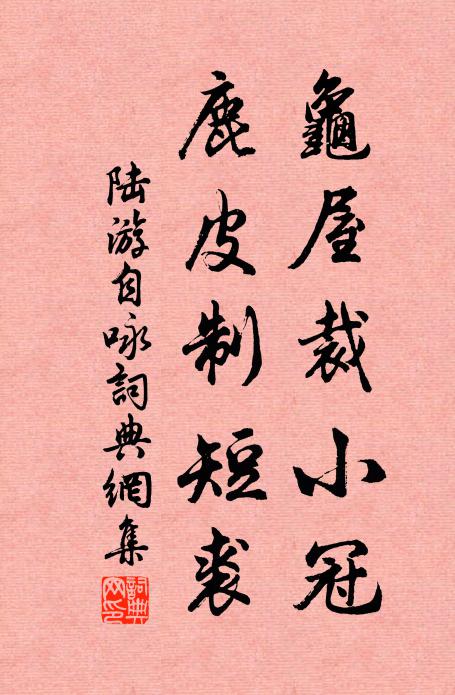 龜屋裁小冠
鹿皮制短裘
陆游自咏詞典網集
詞典網印